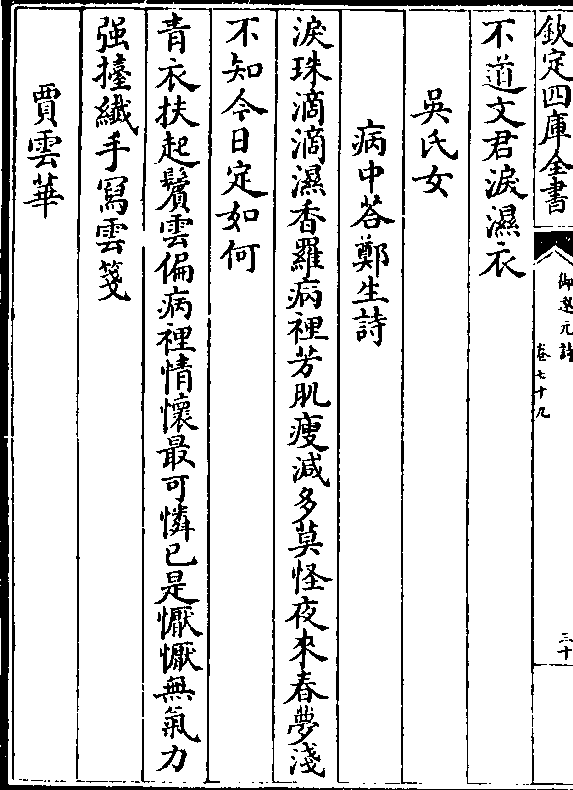 欽定四庫全書
御選元詩
卷七十九
三十
不道文君淚濕衣
吳氏女
病中荅鄭生詩
淚珠滴滴濕香羅病裡芳肌瘦減多莫怪夜來春夢淺
不知今日定如何
青衣扶起鬢雲偏病裡情懷最可憐已是懨懨無氣力
强擡纎手寫雲箋
賈雲華